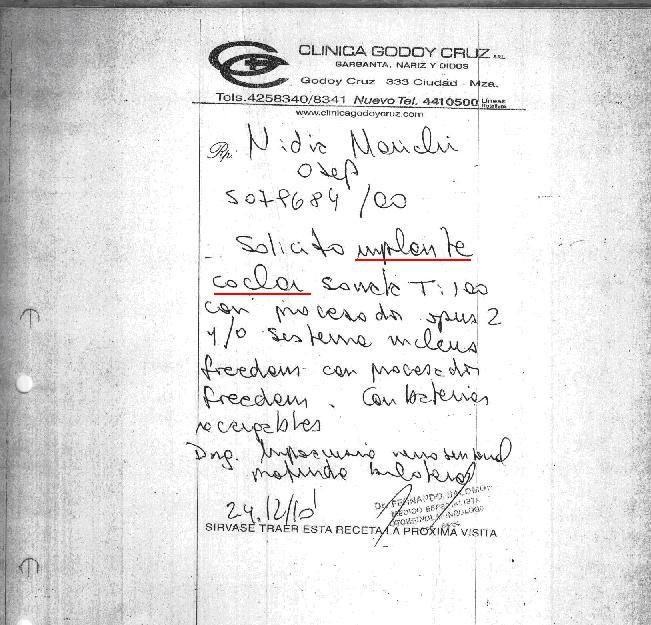 CLINICA GODOY CRUZ S.R.L.
GARGANTA, NARIZ Y OIDOS
Godoy Cruz 333 Ciudad - Mza.
Tels.4258340/8341 Nuevo Tel. 4410500 Lineas Rotativas
www.clinicagodoycruz.com
Rp. Nidia
Osep
5079684/00
Solicito implante
coclear Ti100
con procesador opus 2
y/o sistema nucleus
freedom con procesador
freedom. Con baterias
recargables
Diag. Hipoacusia neurosensorial
profunda bilateral
24/12/10
Dr. FERNANDO
MEDICO ESPECIALISTA
SIRVASE TRAER ESTA RECETA LA PROXIMA VISITA